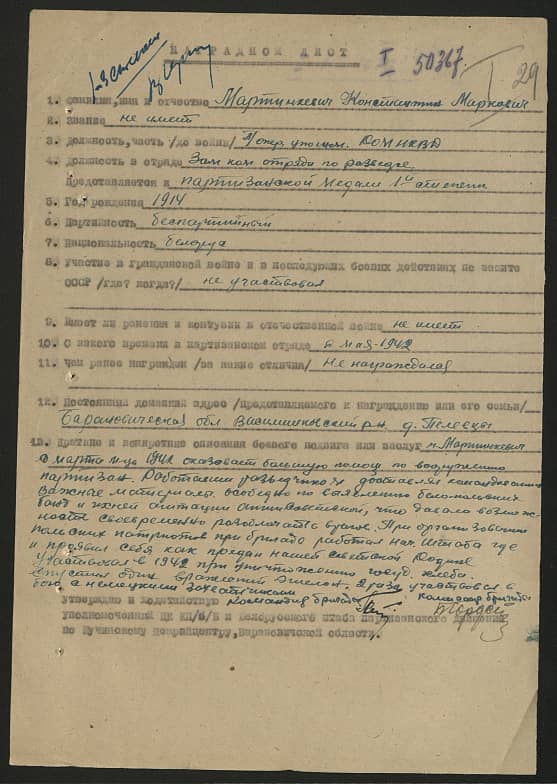 НАГРАДНОЙ ЛИСТ
I 50367
29
1. Фамилия, имя и отчество Мартинкевич Константин Маркович
2. Звание не имеет
3. Должность, часть /до войны/ Опер. уполном. НКВД
4. Должность в отряде Зам ком отряда по разведке
Представляется к партизанской медали 1й степени
5. Год рождения 1914
6. Партийность беспартийный
7. Национальность белорус
8. Участие в гражданской войне и в последующих боевых действиях по защите
СССР /где? когда?/ не участвовал
9. Имеет ли ранения и контузии в отечественной войне не имеет
10. С какого времени в партизанском отряде 6 мая 1942
11. Чем ранее награжден /за какие отличия/ Не награждался
12. Постоянный домашний адрес /представляемого к награждению или его семьи/
Барановическая обл Василишковский р-н, д.
13. Краткое и конкретное описание боевого подвига или заслуг т. Мартинкевич
с марта м-ца 1942 оказывает большую помощь по вооружению
партизан. Работая разведчиком доставлял командованию
важные материалы особенно по выявлению белопольских
банд и ихней агитации антисоветской, что давало возмож-
ность своевременно разоблачать врагов. При организовании
польских патриотов при бригаде работал нач. Штаба где
и проявил себя как предан нашей советской Родине
Участвовал в 1942 при уничтожению госуд. хлеба.
спустил один вражеский эшелон. 2 раза участвовал в
бою с немецкими захватчиками
Командир бригады
Утверждаю и ходатайствую
уполномоченный ЦК КП/б/Б и Белорусского штаба партизанского движения
по Щучинскому межрайцентру, Барановичской области.